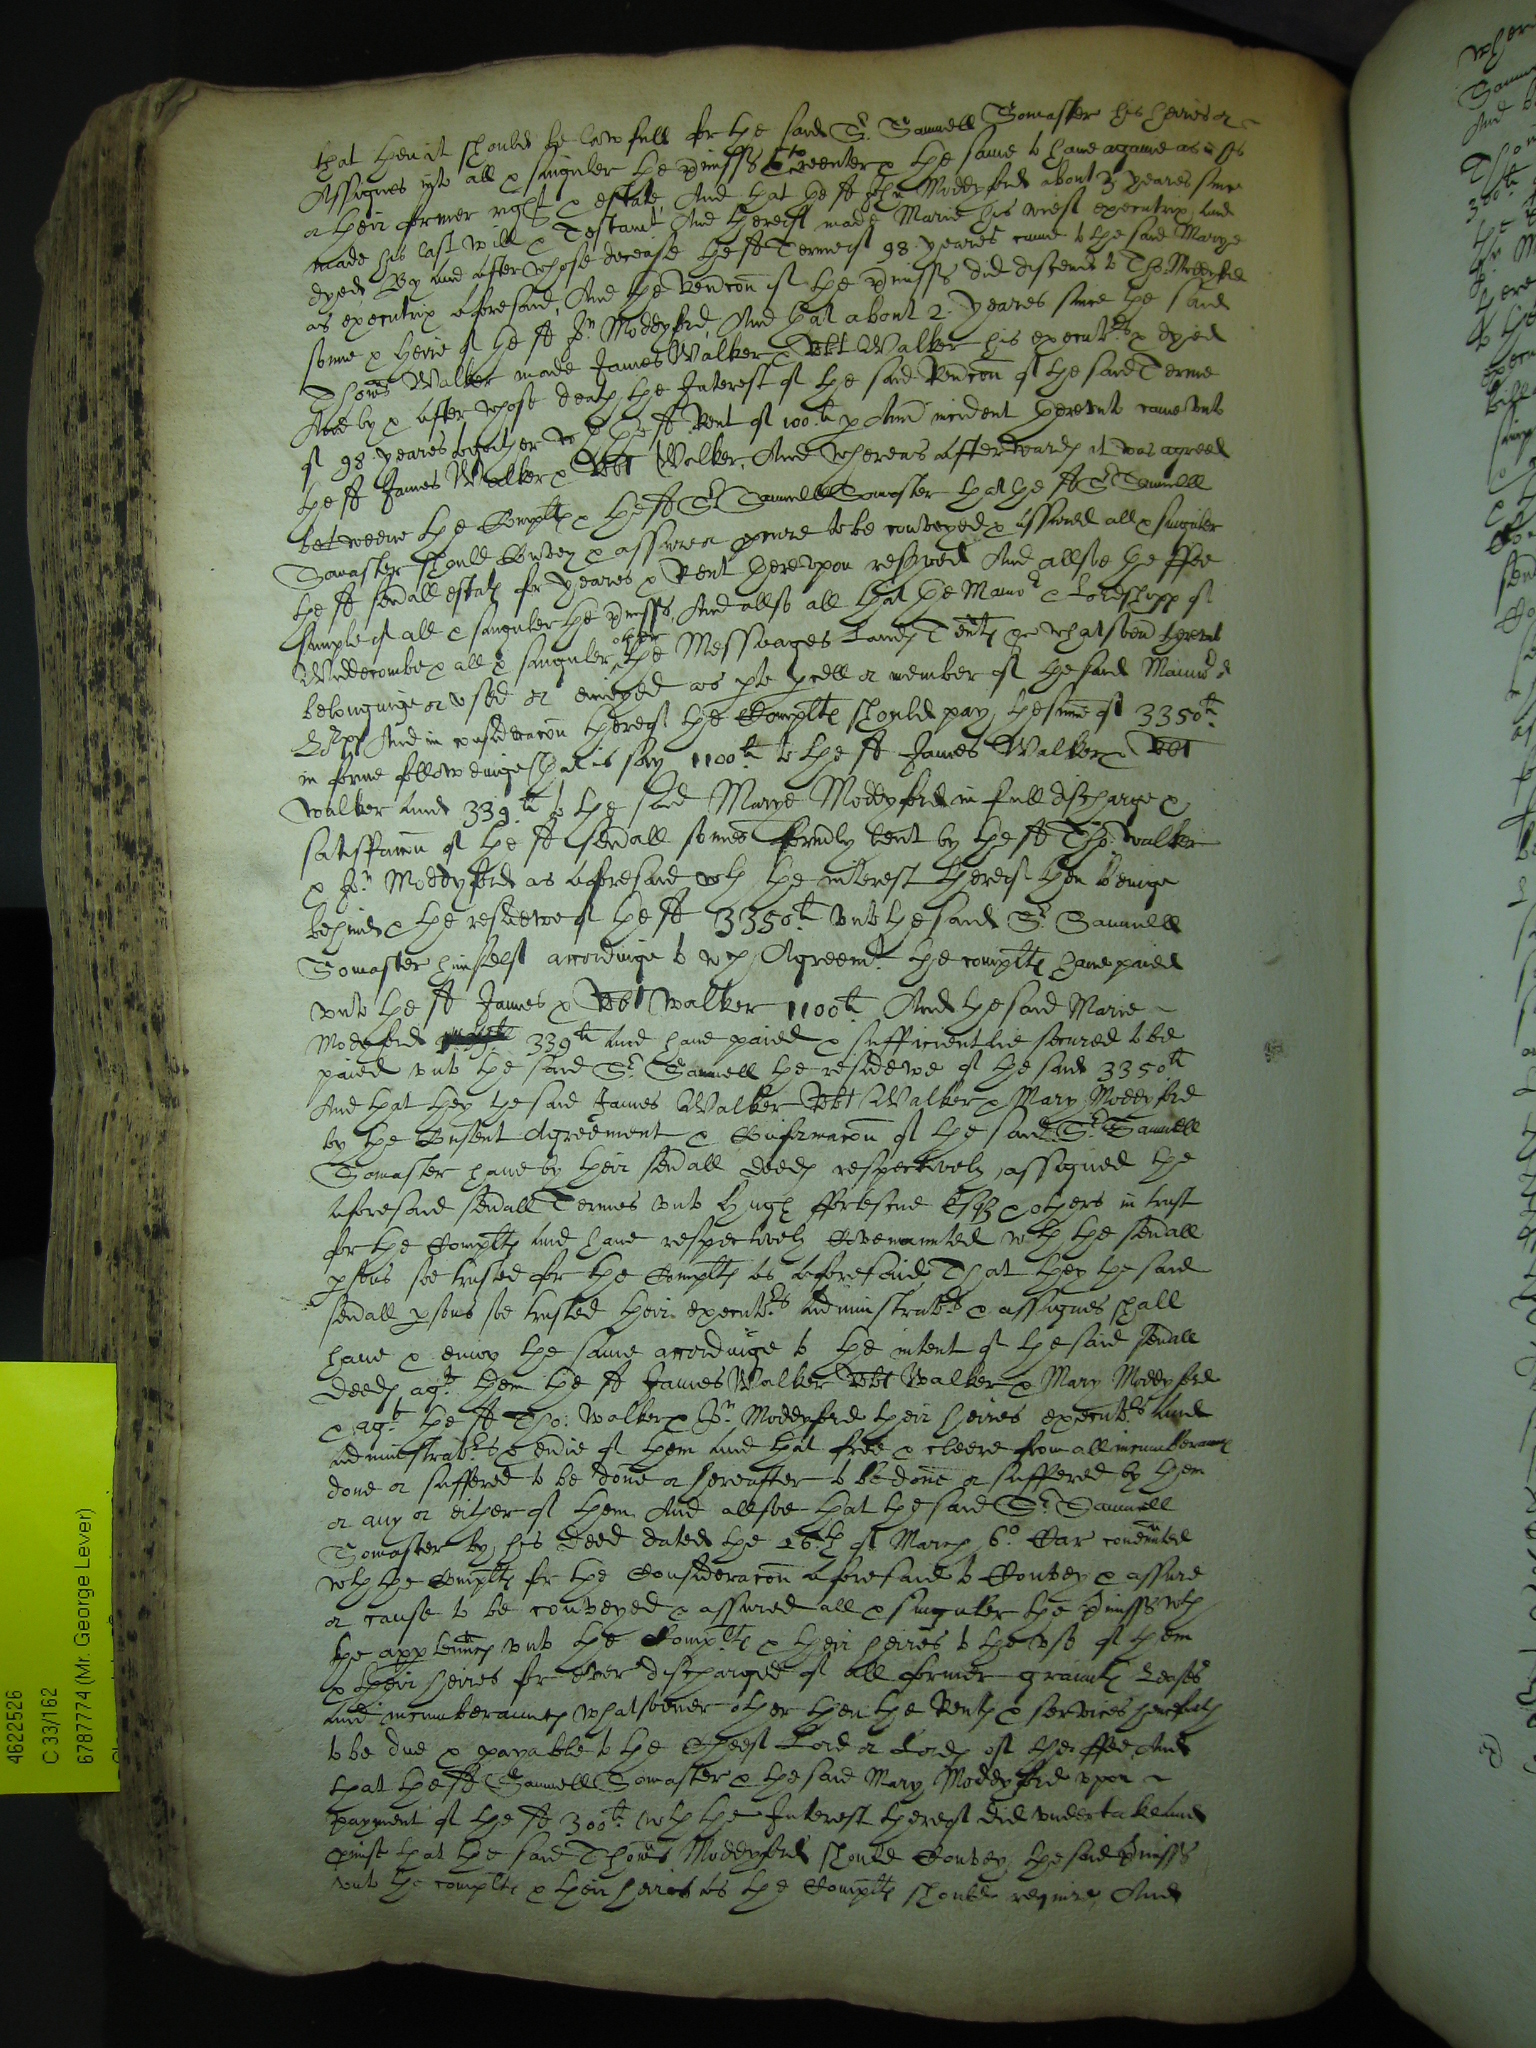 that then it should be lawfull for the said Sr. Samuell Somaster his heires or
Assignes into all & singuler the pmisses to reenter & the same to haue againe as in
their former right & estate, And that the sd John Moddyford about 3 yeares since
made his last will & Testamt And thereof made Marie his wief executrix and
dyed By and after whose decease the sd Terme of 98 yeares came to the said Marye
as executrix aforesaid, And the Revercon of the pmisses did discend to Tho: Moddyford
sonne & heire of the sd Jn Moddyford, And that about 2 yeares since the said
Thomas Walker made James Walker & Robt Walker his executrs & dyed
And by & after whose death the Interest of the said Revercon of the said Terme
of 98 yeares together wth the sd Rent of 100li p Ann incident therevnto came vnto
the sd James Walker & Robt Walker, And whereas afterwards it was agreed
betweene the Complts & the sd Sr Samuell Somaster that the sd Sr Samuell
Somaster should Convey & assure or procure to be conveyed & assured all & singuler
the sd seuall estates for yeares & Rent therevpon reserved And allsoe the ffee
simple of all & singuler the pmisses, And allso all that the Mannor & Lordshipp of
Widdecombe & all & singuler other the Messuages Lands Tents &c whatsoeur therevnto
belonginge or vsed or enioyed as pte pcell or member of the said Mannor &
Lpp, And in consideracon thereof the Complts should pay the sume of 3350li
in forme followeinge that is say 1100li to the sd James Walker & Robt
Walker and 339li to the said Marye Moddyford in full discharge &
satisfaccon of the sd seuall somes formerly lent by the sd Tho: Walker
& Jn Moddyford as aforesaid wth the interest thereof then beinge
behind & the residewe of the sd 3350li vnto the said Sr Samuell
Somaster himselfe accordinge to wch Agreemt the complts haue paied
vnto the sd James & Robt Walker 1100li And the said Marie
Moddyford 339li and haue paied & sufficientlie secured to be
paied vnto the said Sr Samuell the residewe of the said 3350li
And that they the said James Walker Robt Walker & Mary Moddyford
by the Consent Agreement & Confirmacon of the said Sr Samuell
Somaster haue by their seuall deeds respectively assigned the
aforesaid seuall Termes vnto Hugh ffortescue Esqr & others in trust
for the Complts and haue respectively Covenannted wth the seuall
psons soe trusted for the Complts as aforesaid That they the said
seuall psons soe trusted their executrs administratrs & assignes shall
haue & enioy the same accordinge to the intent of the said seuall
deeds agt them the sd James Walker Robt Walker & Mary Moddyford
& agt the sd Tho: Walker & Jn Moddyford their heires executrs and
administratrs & eurie of them and that free & cleere from all incumberances
done or suffered to be done or hereafter to be done or suffered by them
or any or either of them And allsoe that the said Sr Samuell
Somaster by his deed dated the 26th of March 6o Car covennted
wth the Complts for the Consideracon aforesaid to Convey & assure
or cause to be conveyed & assured all & singuler the pmisses wth
the apptennces vnto the Complts & their heires to the vse of them
& their heires for ever discharged of all former graunts Leases
and incumberannces whatsoever other then the Rents & services
to be due & payable to the Cheefe Lord or Lords of the ffee, And
that the sd Samuell Somaster & the said Mary Moddyford vpon
payment of the sd 300li wth the Interest thereof did vndertake and
pmise that the said Thomas Moddyford should Convey the said pmisses
vnto the complts & their heires as the Complts should require, And
4622526
C 33/162
6787774 (Mr. George Lever)